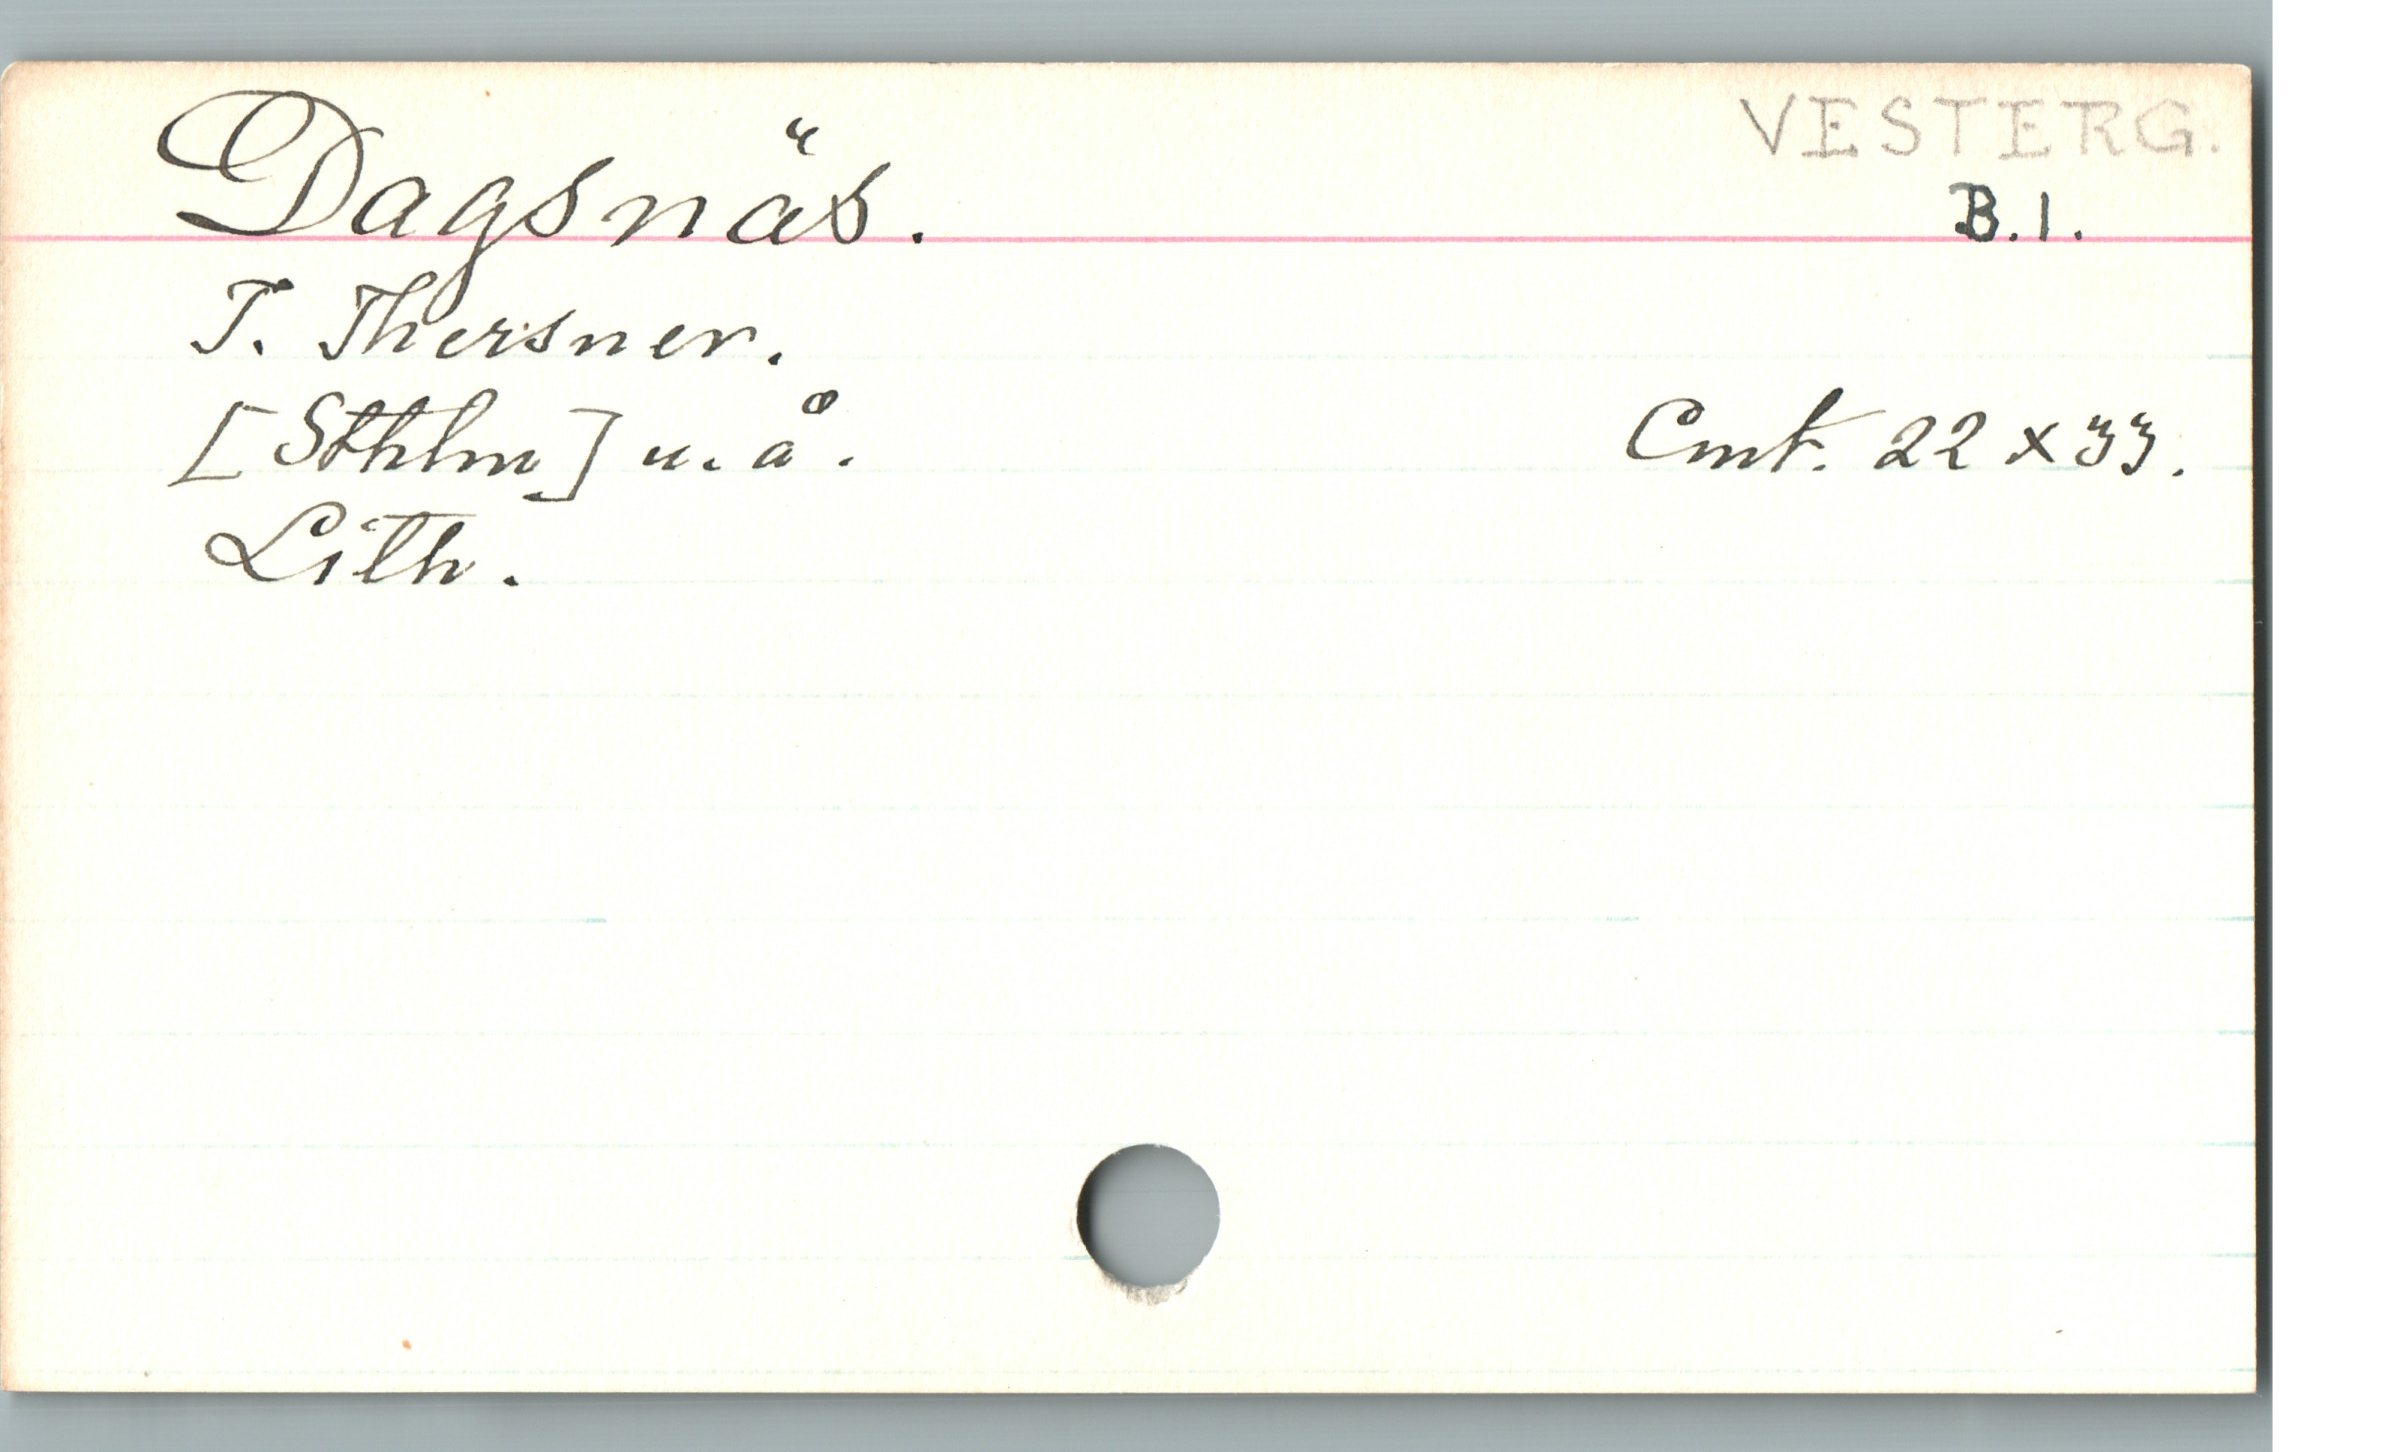 VESTERG.
Dagsnäs.
B.1.
T. Thersner.
[Sthlm] u. å.
Cmt. 22 x 33.
Lith.